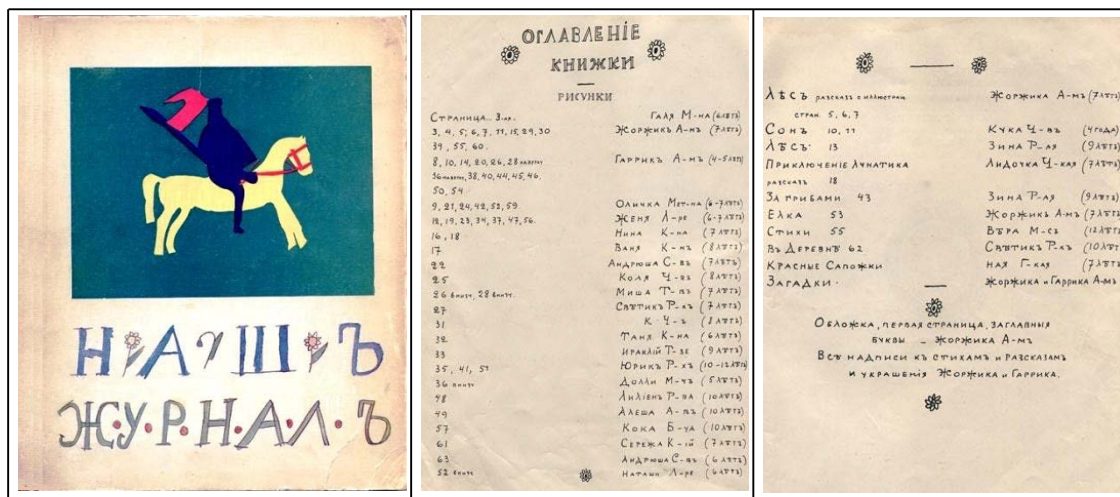 НАШЪ
ЖУРНАЛЪ
ОГЛАВЛЕНІЕ
КНИЖКИ
РИСУНКИ
СТРАНИЦА ГАЛЯ М-НА (6 лѣтъ)
3, 4, 5, 6, 7, 11, 15, 29, 30 ЖОРЖИКЪ А-МЪ (7 лѣтъ)
39, 55, 60.
8, 10, 14, 20, 26, 28 ГАРРИКЪ А-МЪ (4-5 лѣтъ)
38, 40, 44, 45, 46.
50, 54
9, 21, 24, 42, 52, 59 ОЛИЧКА (6-7 лѣтъ)
12, 19, 23, 34, 37, 47, 56. ЖЕНЯ Л-РЕ (6-7 лѣтъ)
16, 18 НИНА К-НА (7 лѣтъ)
17 ВАНЯ (8 лѣтъ)
22 АНДРЮША С-ВЪ (7 лѣтъ)
25 КОЛЯ Ч-ВЪ (8 лѣтъ)
26 внизу, 28 внизу. МИША Т-ВЪ (7 лѣтъ)
27 СВѢТИКЪ Р-ХЪ (7 лѣтъ)
31 К Ч-Ъ (8 лѣтъ)
32 ТАНЯ К-НА (6 лѣтъ)
33 ИРАКЛІЙ Т-ЗЕ (9 лѣтъ)
35, 41, ЮРИКЪ Р-ХЪ (10-12 лѣтъ)
36 внизу ДОЛЛИ (5 лѣтъ)
48 ЛИЛІЕНЪ (10 лѣтъ)
49 АЛЕША (10 лѣтъ)
57 КОКА (10 лѣтъ)
61 СЕРЕЖА К-ІЙ (7 лѣтъ)
63 АНДРЮША С-ВЪ (6 лѣтъ)
52 внизу НАТАШИ Л-РЕ (6 лѣтъ)
ЛѢСЪ разсказъ с иллюстрац. ЖОРЖИКА А-МЪ (7 лѣтъ)
стран. 5, 6, 7
СОНЪ 10, 11 КУКА Ч-ВЪ (4 года)
ЛѢСЪ 13 ЗИНА Р-АЯ (9 лѣтъ)
ПРИКЛЮЧЕНІЕ ЛУНАТИКА ЛИДОЧКА Ч-КАЯ (7 лѣтъ)
разсказъ 18
ЗА ГРИБАМИ 43 ЗИНА Р-АЯ (9 лѣтъ)
ЕЛКА 53 ЖОРЖИКЪ А-МЪ (7 лѣтъ)
СТИХИ 55 ВѢРА М-СЪ (12 лѣтъ)
ВЪ ДЕРЕВНѢ 62 СВѢТИКЪ Р-ХЪ (10 лѣтъ)
КРАСНЫЕ САПОЖКИ НАЯ Г-КАЯ (7 лѣтъ)
ЗАГАДКИ. ЖОРЖИКА И ГАРРИКА А-МЪ
ОБЛОЖКА, ПЕРВАЯ СТРАНИЦА, ЗАГЛАВНЫЯ
БУКВЫ – ЖОРЖИКА А-МЪ
ВСѢ НАДПИСИ КЪ СТИХАМЪ И РАЗСКАЗАМЪ
И УКРАШЕНІЯ ЖОРЖИКА И ГАРРИКА.